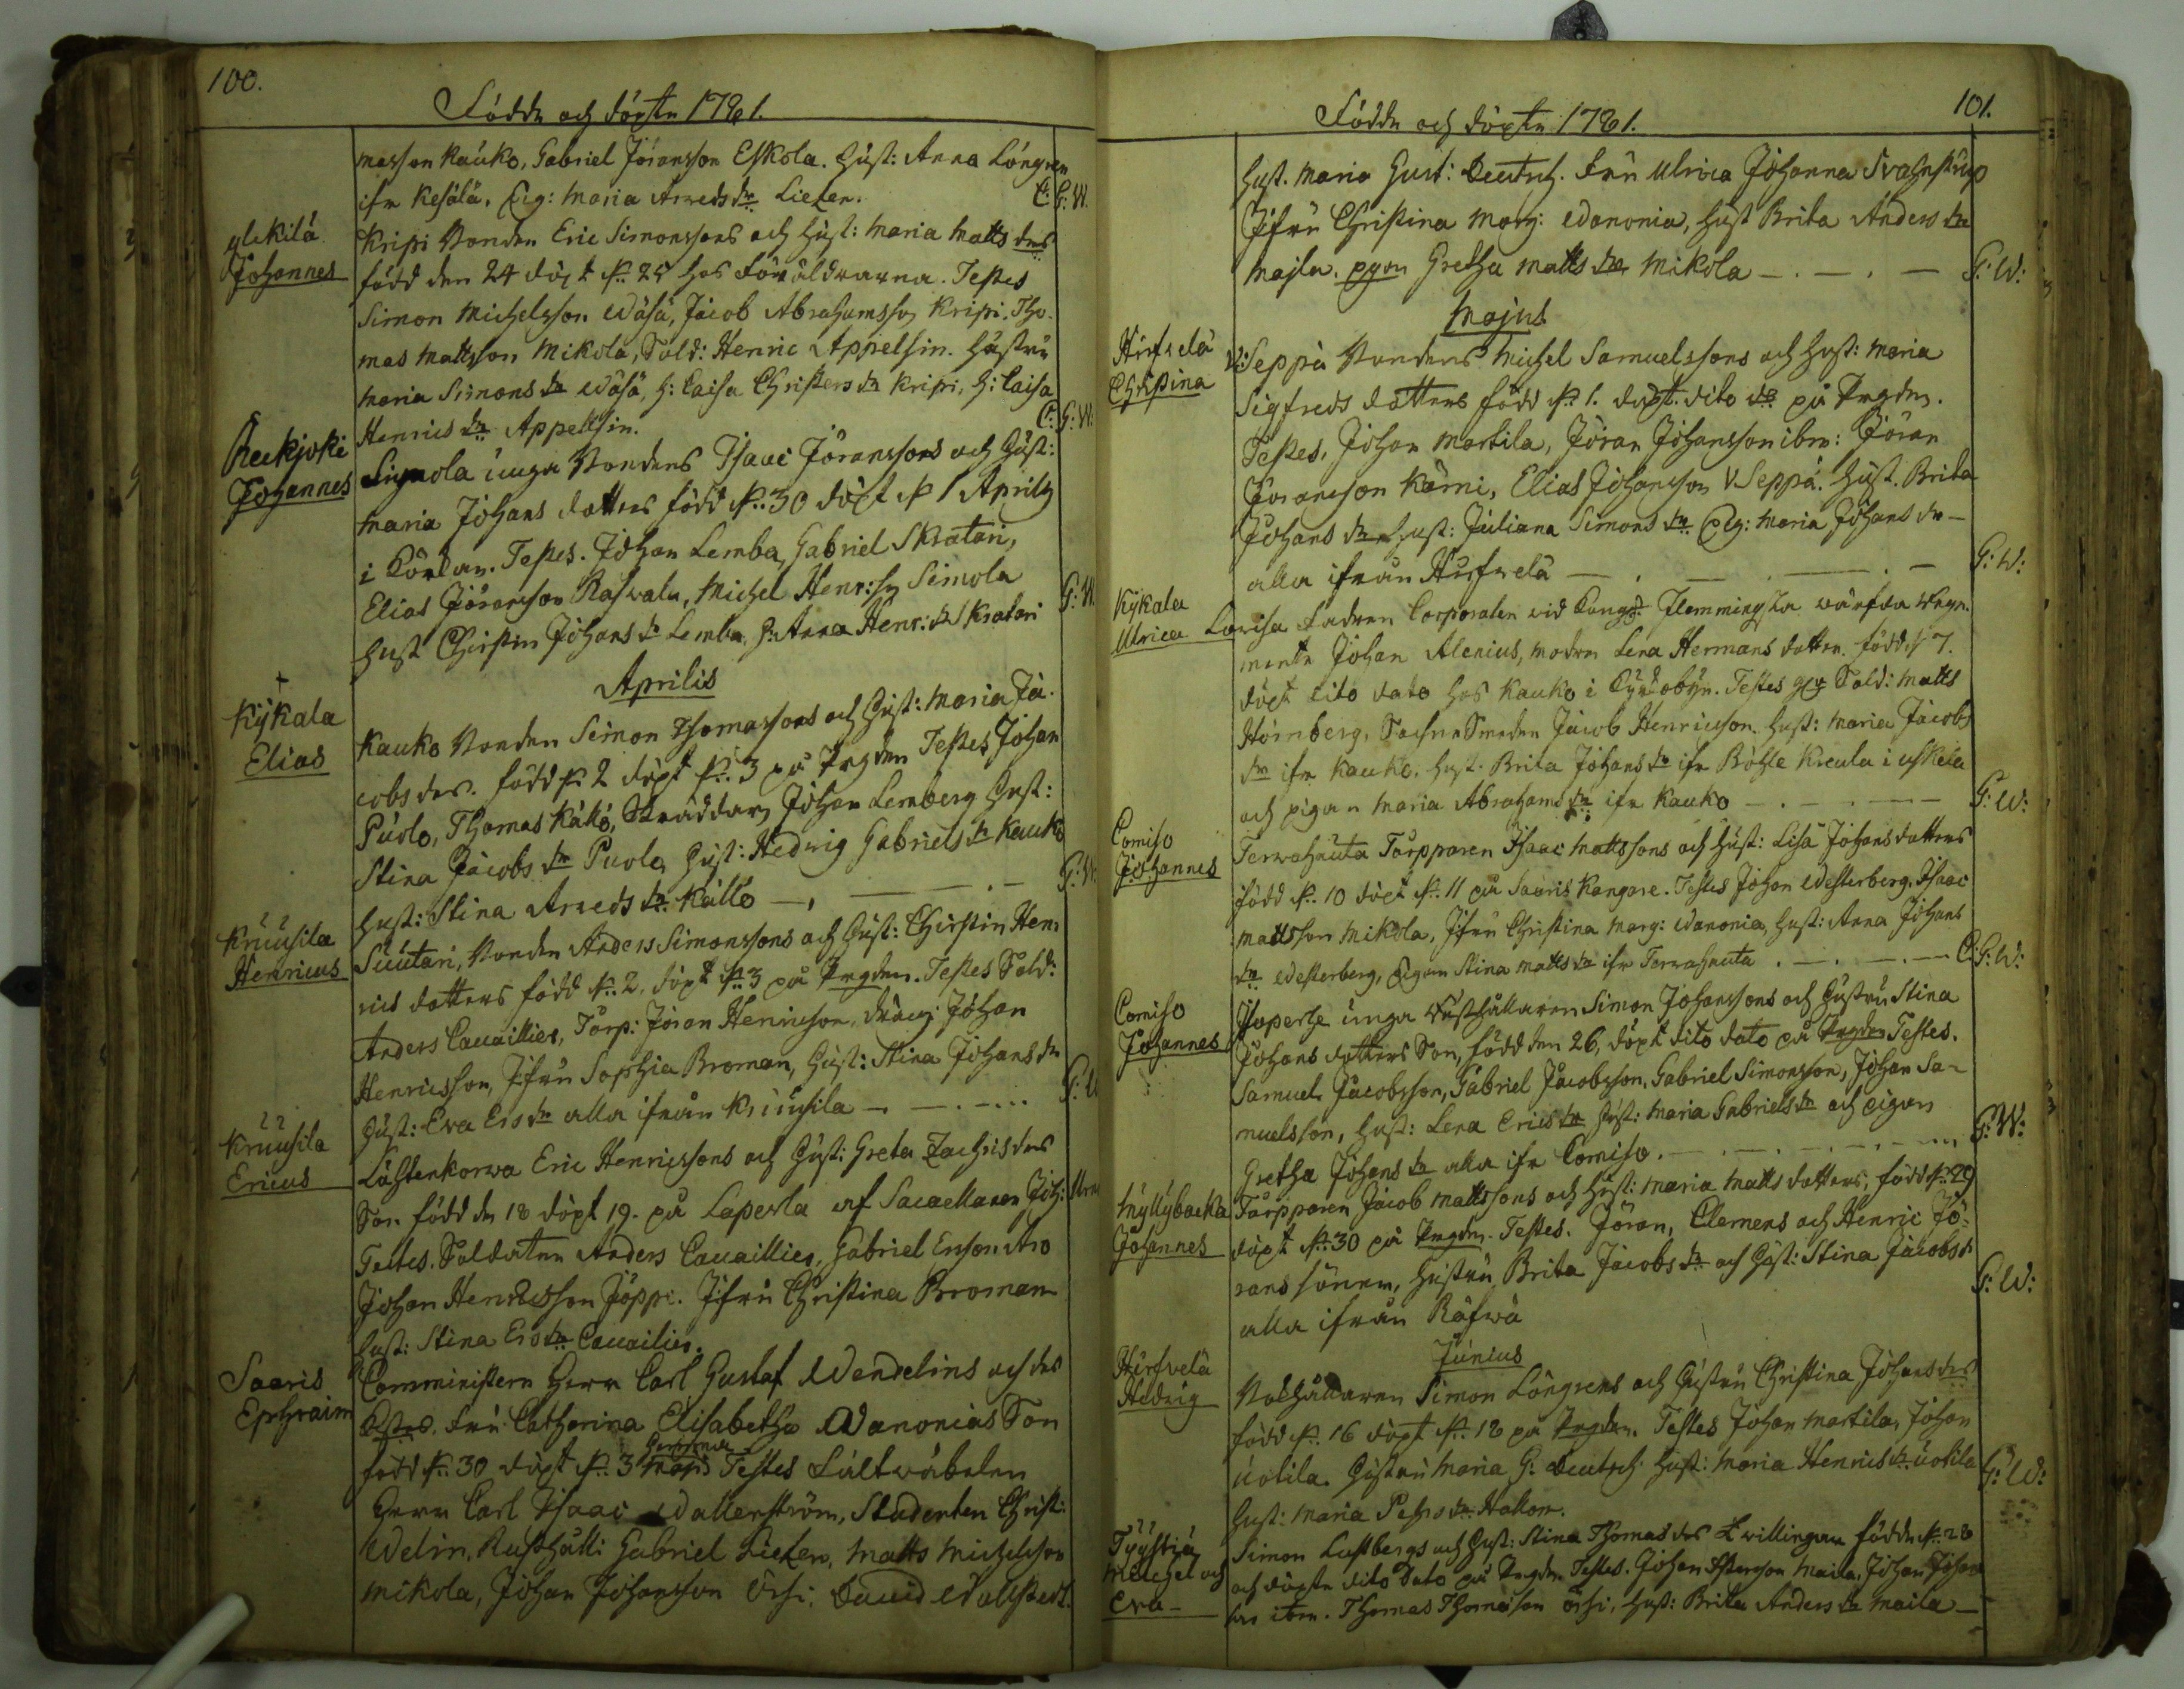 100.
Födde och döpte 1781.
masson Kauko, Gabriel Jöransson Eskola. Hust: Anna Löngren
ifr Kesälä. Pig: Maria Arvedsdr Lieken.
C. G. W.
ylikilä
Johannes
Kripi Bonden Eric Simonssons och Hust: Maria Mattsdrs
född den 24 döpt d. 25 hos Föräldrarna. Testes
Simon Michelsson Wäsä, Jacob Abrahamsson Kripi, Tho-
mas Mattsson Mikola, Sold: Henric Appelsin. Hustru
Maria Simonsdr Wäsä, H: Caisa Christersdr Kripi, H: Caisa
Henricsdr Appelsin.
C: G: W:
Reckjoki
Johannes
Simola unga Bondens Isaac Jöranssons och Hust:
Maria Johans dotters född d. 30 döpt d. 1 Aprilis
i Kyrkan. Testes. Johan Lemba, Gabriel Skratari,
Elias Jöransson Raswala, Michel Henr:son Simola
Hust Christin Johansdr Lemba, H: Anna Henr:dr Skratari
G: W
Aprilis
Kykala
Elias
Kauko Bonden Simon Thomassons och Hust: Maria Ja-
cobsdrs. född d. 2 döpt d. 3 på Prgden Testes Johan
Puolo, Thomas Källö, Skräddaren Johan Lemberg Hust:
Stina Jacobsdr Puolo, Hust: Hedvig Gabrielsdr Kauko
Hust: Stina Arvedsdr Källö
G: W
Kruusila
Henricus
Suutari, Bonden Anders Simonssons och Hust: Christin Hen-
rics dotters född d. 2. döpt d. 3 på Prgden. Testes Sold:
Anders Cavaillier, Torp: Jöran Henricsson, Dräng Johan
Henricsson, Jfru Sophia Broman, Hust: Stina Johansdr
Hust: Eva Ersdr alla ifrån Kruusila
G: W
Kruusila
Ericus
Lähtenkorwa Eric Henricssons och Hust: Greta Zachrisdrs
Son född dn 18 döpt 19. på Laperla af Sacellanen Joh:
Testes. Soldaten Anders Cavaillier, Gabriel Ersson Aro
Johan Henricsson Joppi. Jfru Christina Broman
Hust: Stina Ersdr Cavailier.
Saaris
Ephraim
Comministern Herr Carl Gustaf Wendelins och dess
Fru Catharina Elisabetha Wanonias Son
född d. 30 döpt d. 3 Maji Testes Fältwäbelen
Herr Carl Isaac Wallerström, Studenten Christ:
Welin, Rusthåll: Gabriel Lieken, Matts Michelsson
Mikola, Johan Johansson Orsi, David Wallstedt.
101.
Födde och döpte 1781.
Hust. Maria Gust: Deutsch. Fru Ulrica Johanna Svahnström
Jfru Christina Marg: Wanonia, Hust Brita Andersdr
Majla. pigan Gretha Mattsdr Mikola
G: W:
Majus
Hirfvelä
Christina
V: Seppä Bondens Michel Samuelssons och Hust: Maria
Sigfreds dotters född d. 1. döpt dito do på Prgden.
Testes, Johan Martila, Jöran Johansson ibm: Jöran
Jöransson Kärni, Elias Johansson V. Seppä. Hust. Brita
Johansdr Hust: Juliana Simonsdr Pig: Maria Johansdr
alla ifrån Hirfvelä
G: W:
Kykala
Ulrica
Lovisa Fadren Corporalen vid Kongl. Flemmingska wärfda Rege-
mente Johan Alenius, modren Lena Hermans dotter. född d. 7.
döpt dito dato hos Kauko i Kyrkobyn. Testes Sold: Matts
Hörnberg, Sochne Smeden Jacob Henricsson. Hust: Maria Jacobs
dr ifr Kauko. Hust. Brita Johansdr ifr Böhle Kreula i Uskela
och pigan Maria Abrahamsdr ifr Kauko
G: W:
Comiso
Johannes
Terwahauta Torpparen Isaac Mattssons och Hust: Lisa Johansdotters
född d. 10 döpt d. 11 på Saaris Kangare. Testes Johan Westerberg, Isaac
Mattsson Mikola, Jfru Christina Marg: Wanonia, Hust: Anna Johans
dr Westerberg, Pigan Stina Mattsdr ifr Terwahauta
C. G: W:
Comiso
Johannes
Isoperhe unga Rusthållaren Simon Johanssons och Hustru Stina
Johans dotters Son, född den 26, döpt dito dato på Prgden Testes.
Samuel Jacobsson, Gabriel Jacobsson, Gabriel Simonsson, Johan Sa-
muelsson, Hust: Lena Ericsdr Hust: Maria Gabrielsdr och pigan
Gretha Johansdr alla ifr Comiso.
G: W:
Myllybacka
Johannes
Torpparen Jacob Mattssons och Hust: Maria Matts dotters, född d. 29
döpt d. 30 på Prgden. Testes. Jöran, Clemens och Henric Jö-
rans söner, Hustru Brita Jacobsdr och Hust: Stina Jacobsdr
alla ifrån Räfwä
G: W:
Junius
Hirfvelä
Hedvig
Simon Löngrens och Hustru Christina Johansdrs
född d. 16 döpt d. 18 på Prgden. Testes Johan Martila, Johan
Uotila. Hustru Maria G: Deutsch Hust: Maria Henricsdr Uotila
Hust: Maria Pehrsdr Hakon.
G: W:
Tyystiä
Michel och
Eva
Simon Lustbergs och Hust: Stina Thomasdrs Twillingar födde d. 28
och döpte dito Dato på Prgden Testes. Johan Maila, Johan Johans
son ibm. Thomas Thomasson Orsi, Hust: Brita Andersdr Maila